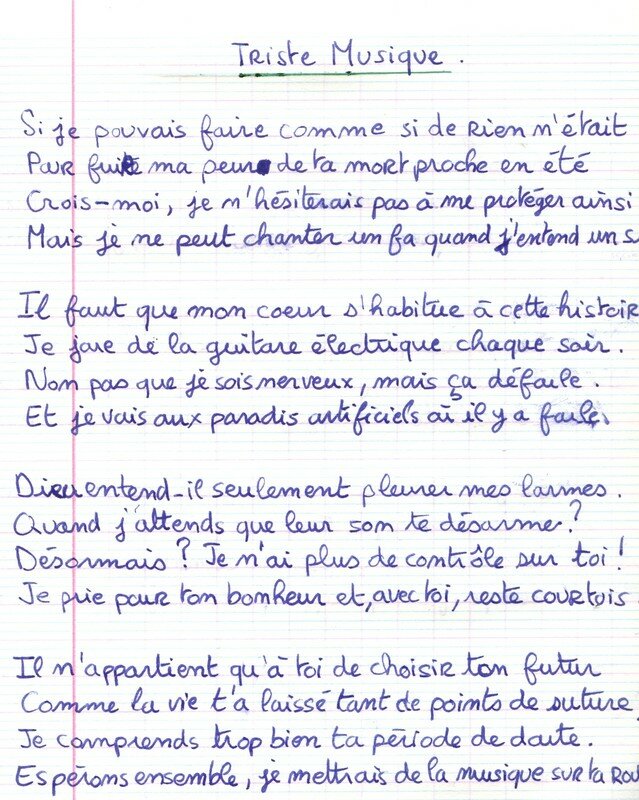 Triste Musique.
Si je pouvais faire comme si de rien n'était
Pour fuite ma peur de ta mort proche en été
Crois-moi, je n'hésiterais pas à me protéger ainsi
Mais je ne peut chanter un fa quand j'entend un s
Il faut que mon coeur s'habitue à cette histoir
Je joue de la guitare électrique chaque soir.
Non pas que je sois nerveux, mais ça défoule.
Et je vais aux paradis artificiels où il y a foule.
Dieu entend-il seulement pleurer mes larmes.
Quand j'attends que leur son te désarme?
Désormais? Je n'ai plus de contrôle sur toi!
Je prie pour ton bonheur et, avec toi, reste courtois
Il n'appartient qu'à toi de choisir ton futur
Comme la vie t'a laissé tant de points de suture
Je comprends trop bien ta période de doute.
Espérons ensemble, je mettrais de la musique sur ta Rou